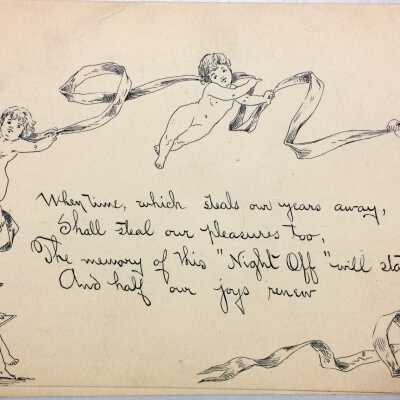 When time, which steals our years away,
Shall steal our pleasures too,
The memory of this "Night Off" will sta
And half our joys renew